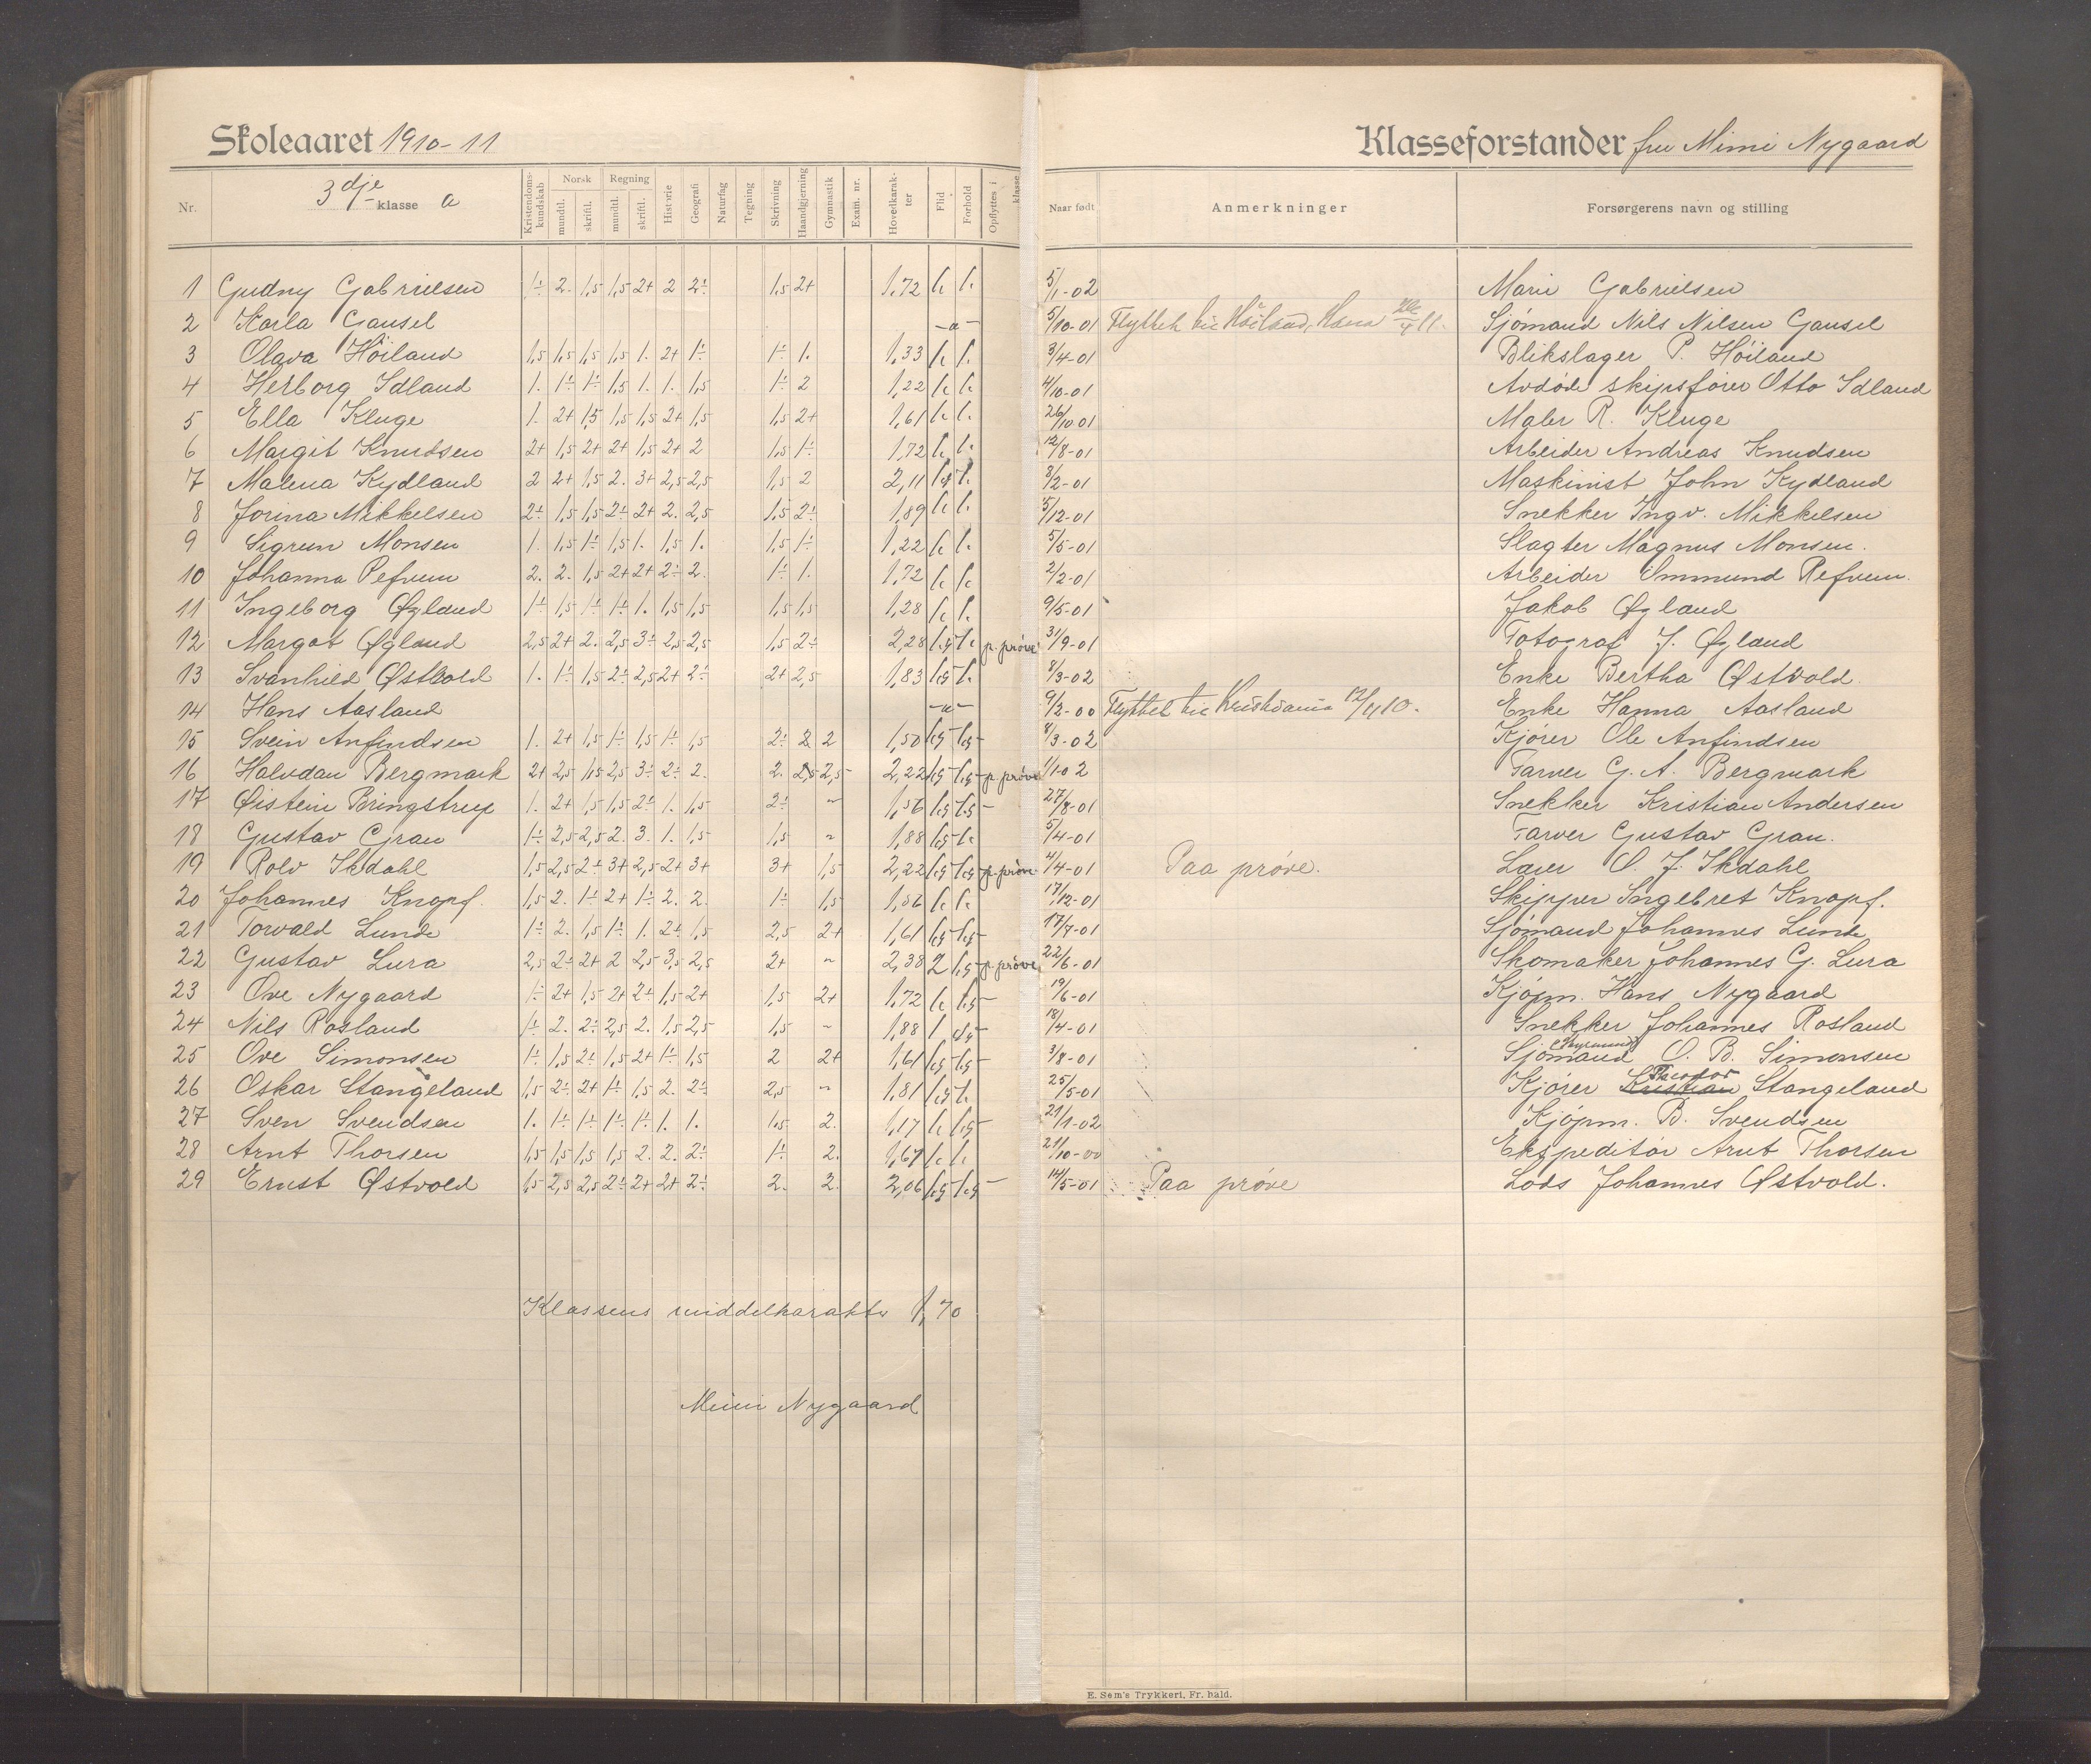 Skoleaaret 1910-11
Klasseforstander fru Mimi Nygaard
Nr.
3dje klasse a
Kristendoms-kundskab
Norsk
mundtl.
skriftl.
Regning
mundtl.
skriftl.
Historie
Geografi
Naturfag
Tegning
Skrivning
Haandgjerning
Gymnastik
Exam. nr.
Hovedkarak-ter
Flid
Forhold
Opflyttes i klasse
Naar født
Anmerkninger
Forsørgerens navn og stilling
1 Gudny Gabrielsen 1÷ 2. 1,5 1,5 2+ 2 2÷ 1,5 2+ 1,72 5/1-02 Marie Gabrielsen
2 Karla Gausel 5/10-01 Flyttet til Sjømand Nils Nilsen Gausel
3 Olava Höiland 1,5 1,5 1,5 1,5 1. 2+ 1÷ 1÷ 1. 1,33 3/4-01 Blikslager P. Höiland
4 Herborg Idland 1. 1÷ 1÷ 1,5 1. 1. 1,5 1÷ 2 1,22 4/10-01 Avdøde skipsfører Otto Idland
5 Ella Kluge 1. 2+ 1,5 1,5 1,5 2+ 1,5 1,5 2+ 1,61 26/10 01 Maler R. Kluge
6 Margit Knudsen 2+ 1,5 2+ 2+ 1,5 2+ 2 1,5 1÷ 1,72 12/8-01 Arbeider Andreas Knudsen
7 Malena Kydland 2 2+ 1,5 2. 3+ 2,5 2,5 1,5 2 2,11 8/2-01 Maskinist John Kydland
8 Jorina Mikkelsen 2÷ 1,5 1,5 2÷ 2+ 2. 2,5 1,5 2÷ 1,89 5/12-01 Snekker Ingv. Mikkelsen
9 Sigrun Monsen 1. 1,5 1÷ 1,5 1. 1,5 1. 1,5 1÷ 1,22 5/5-01 Slagter Magnus Monsen.
10 Johanna Refvem 2. 2. 1,5 2+ 2+ 2÷ 2. 1÷ 1. 1,72 2/2-01 Arbeider Ommund Refvem.
11 Ingeborg Øgland 1÷ 1,5 1÷ 1÷ 1. 1,5 1,5 1,5 1,5 1,28 9/5-01 Jakob Øgland
12 Margot Øgland 2,5 2+ 2. 2,5 3÷ 2,5 2,5 1,5 2÷ 2,28 p. prøve 31/9-01 Fotograf J. Øgland
13 Svanhild Østvold 1. 1÷ 1,5 2÷ 2,5 2+ 2÷ 2+ 2,5 1,83 8/3-02 Enke Bertha Østvold.
14 Hans Aasland 9/2-00 Flyttet til Kristiania 12/4 10. Enke Hanna Aasland
15 Svein Anfindsen 1. 2+ 1,5 1÷ 1,5 1÷ 1,5 2÷ 2 2 1,50 8/3-02 Kjörer Ole Anfindsen
16 Halvdan Bergmark 2+ 2,5 1,5 2,5 3÷ 2÷ 2. 2. 2,5 2,5 2,22 p. prøve 1/1 02 Farver G. A. Bergmark
17 Øistein Bringstrup 1. 2+ 1,5 1,5 2÷ 1. 1,5 2÷ 1,56 27/8-01 Snekker Kristian Andersen
18 Gustav Gran 1÷ 2,5 2,5 2. 3. 1. 1,5 1,5 1,88 5/4-01 Farver Gustav Gran.
19 Rolv Skdahl 1,5 2,5 2÷ 3+ 2,5 2+ 3+ 3+ 1,5 2,22 p. prøve 4/4-01 Paa prøve. O. J. Skdahl
20 Johannes Knopf. 1,5 2. 1÷ 2+ 1÷ 2. 2. 1÷ 1,5 1,56 17/12-01 Skipper Ingebret Knopf.
21 Torvald Lunde 1÷ 2. 1,5 1÷ 1. 2÷ 1,5 2,5 2+ 1,61 17/7-01 Sjømand Johannes Lunde
22 Gustav Lura 2,5 2÷ 2+ 2 2,5 3,5 2,5 2+ 2,38 2 p. prøve 22/6-01 Skomaker Johannes G. Lura
23 Ove Nygaard 1÷ 2+ 1,5 2+ 2÷ 1,5 2+ 1,5 2+ 1,72 19/6-01 Kjøpm. Hans Nygaard
24 Nils Rosland 1÷ 2. 2÷ 2,5 2. 1,5 2,5 1,5 1,88 18/4-01 Snekker Johannes Rosland
25 Ove Simonsen 1÷ 1,5 2÷ 1,5 2+ 1÷ 1,5 2 2+ 1,61 3/8-01 Sjømand O. B. Simonsen
26 Oskar Stangeland 1,5 2÷ 2+ 1÷ 1,5 2. 2÷ 2,5 1,81 25/5-01 Kjörer Kristian Teodor Stangeland
27 Sven Svendsen 1. 1÷ 1÷ 1÷ 1÷ 1. 1. 1,5 2. 1,17 21/1-02 Kjøpm. B. Svendsen
28 Arnt Thorsen 1,5 1,5 1,5 1,5 2. 2. 2÷ 1÷ 2. 1,67 21/10-00 Ekspeditör Arnt Thorsen
29 Ernst Østvold 1,5 2,5 2,5 2÷ 2+ 2+ 2÷ 2. 2. 2,06 14/5-01 Paa prøve Lods Johannes Østvold.
Klassens middelkarakter 1,70
Mimi Nygaard
E. Sem's Trykkeri, Fr. hald.